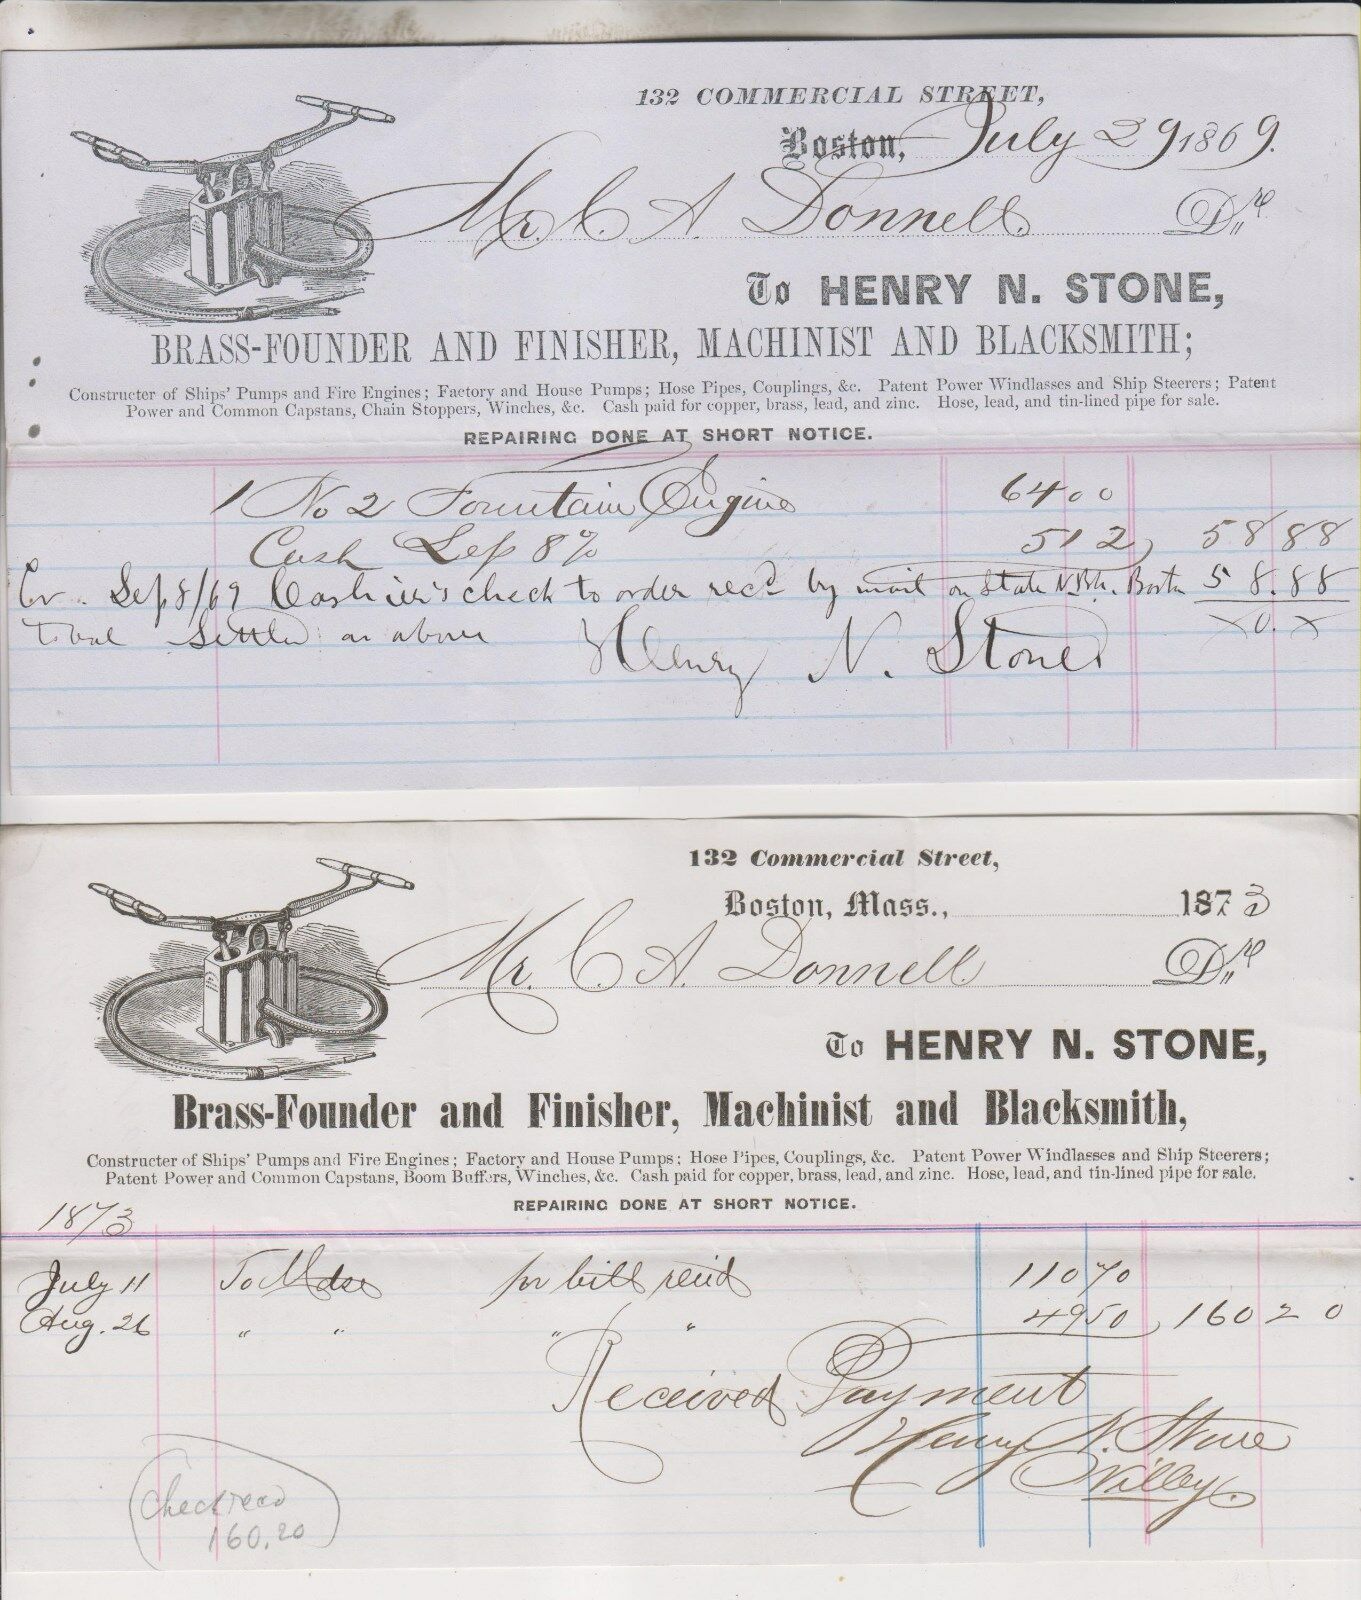 132 COMMERCIAL STREET,
Boston, July 29 1869.
Mr. C. A. Donnell. Dr
To HENRY N. STONE,
BRASS-FOUNDER AND FINISHER, MACHINIST AND BLACKSMITH;
Constructer of Ships' Pumps and Fire Engines; Factory and House Pumps; Hose Pipes, Couplings, &c. Patent Power Windlasses and Ship Steerers; Patent
Power and Common Capstans, Chain Stoppers, Winches, &c. Cash paid for copper, brass, lead, and zinc. Hose, lead, and tin-lined pipe for sale.
REPAIRING DONE AT SHORT NOTICE.
1 No 2 Fountain Engine 64 00
Cash Sep 8% 5 12 58 88
Cr. Sep 8/69 Cashier's check to order rec'd by mail on State N. Bk. Boston 58.88
Settled as above x0.x
Henry N. Stone
132 Commercial Street,
Boston, Mass., 1873
Mr. C. A. Donnell Dr
To HENRY N. STONE,
Brass-Founder and Finisher, Machinist and Blacksmith,
Constructer of Ships' Pumps and Fire Engines; Factory and House Pumps; Hose Pipes, Couplings, &c. Patent Power Windlasses and Ship Steerers;
Patent Power and Common Capstans, Boom Buffers, Winches, &c. Cash paid for copper, brass, lead, and zinc. Hose, lead, and tin-lined pipe for sale.
REPAIRING DONE AT SHORT NOTICE.
1873
July 11 To Mdse per bill rend 110 70
Aug. 26 " " " " 49 50 160 20
Received Payment
Henry N. Stone
Willey
Check recd
160.20